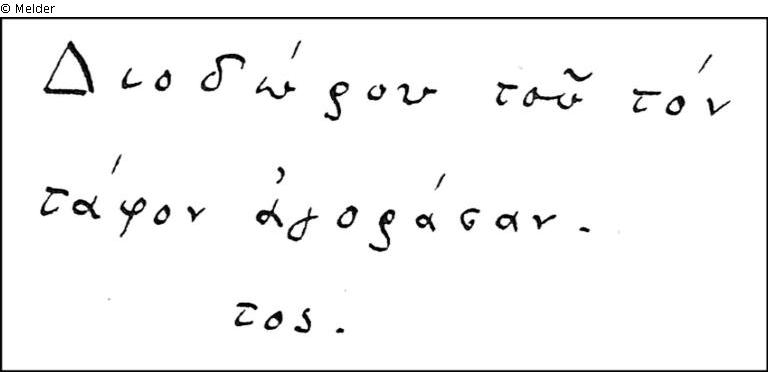 © Melder
Διοδώρου τοῦ τὸν
τάφον ἀγοράσαν.
τος.